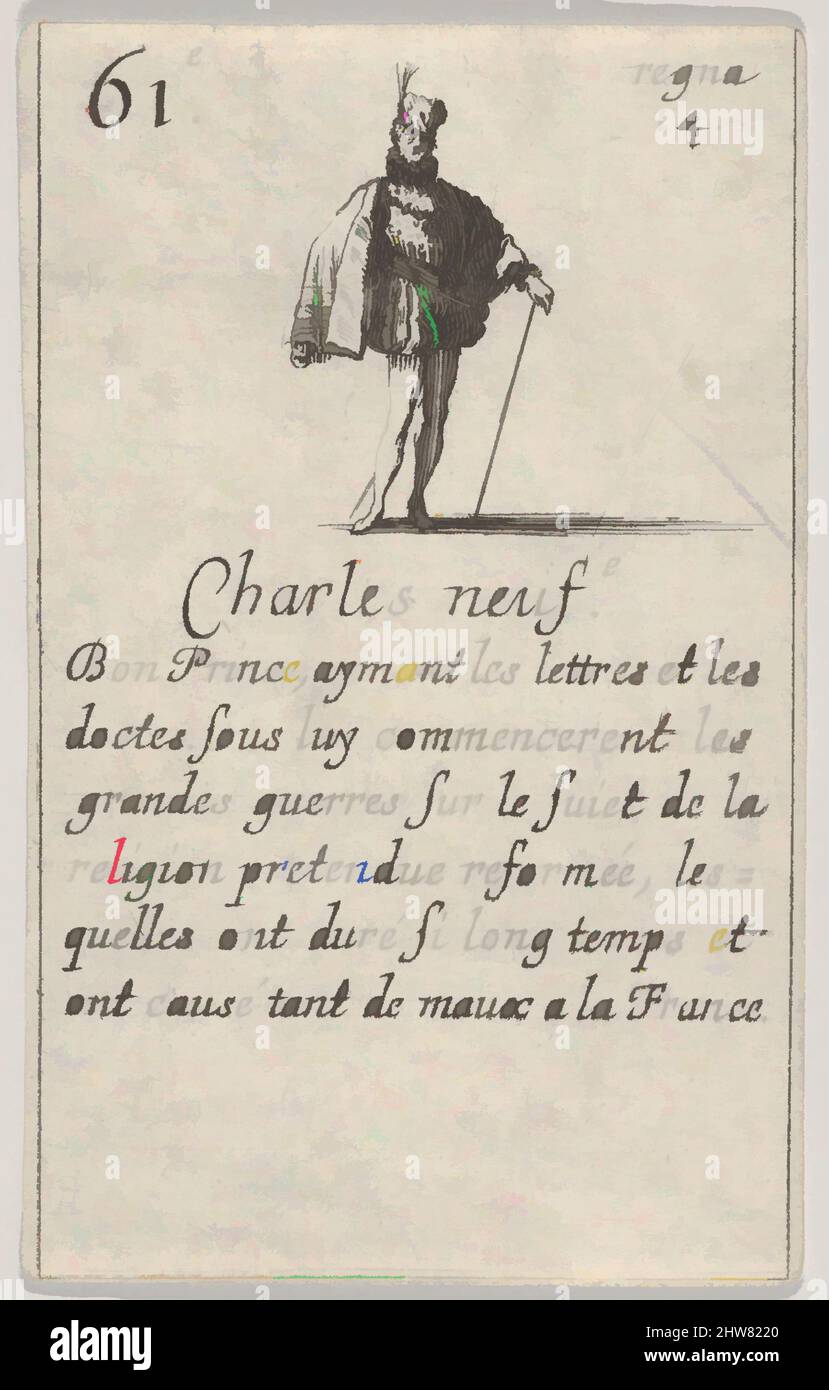 61
regna
4
Charles neuf.
Bon Prince, aymant les lettres et les
doctes ſous luy commencerent les
grandes guerres ſur le ſuiet de la
religion pretendue reformée, les=
quelles ont duré ſi long temps et
ont causé tant de maux a la France
alamy
Image ID: 2HW8220
www.alamy.com